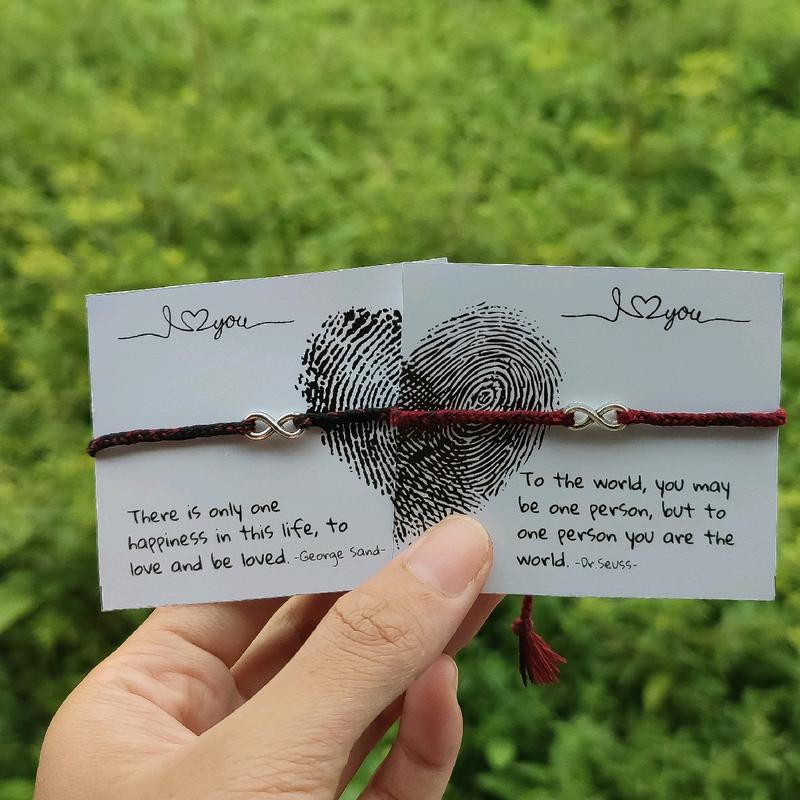 I ♡ you
There is only one
happiness in this life, to
love and be loved. -George Sand-
I ♡ you
To the world, you may
be one person, but to
one person you are the
world. -Dr.Seuss-